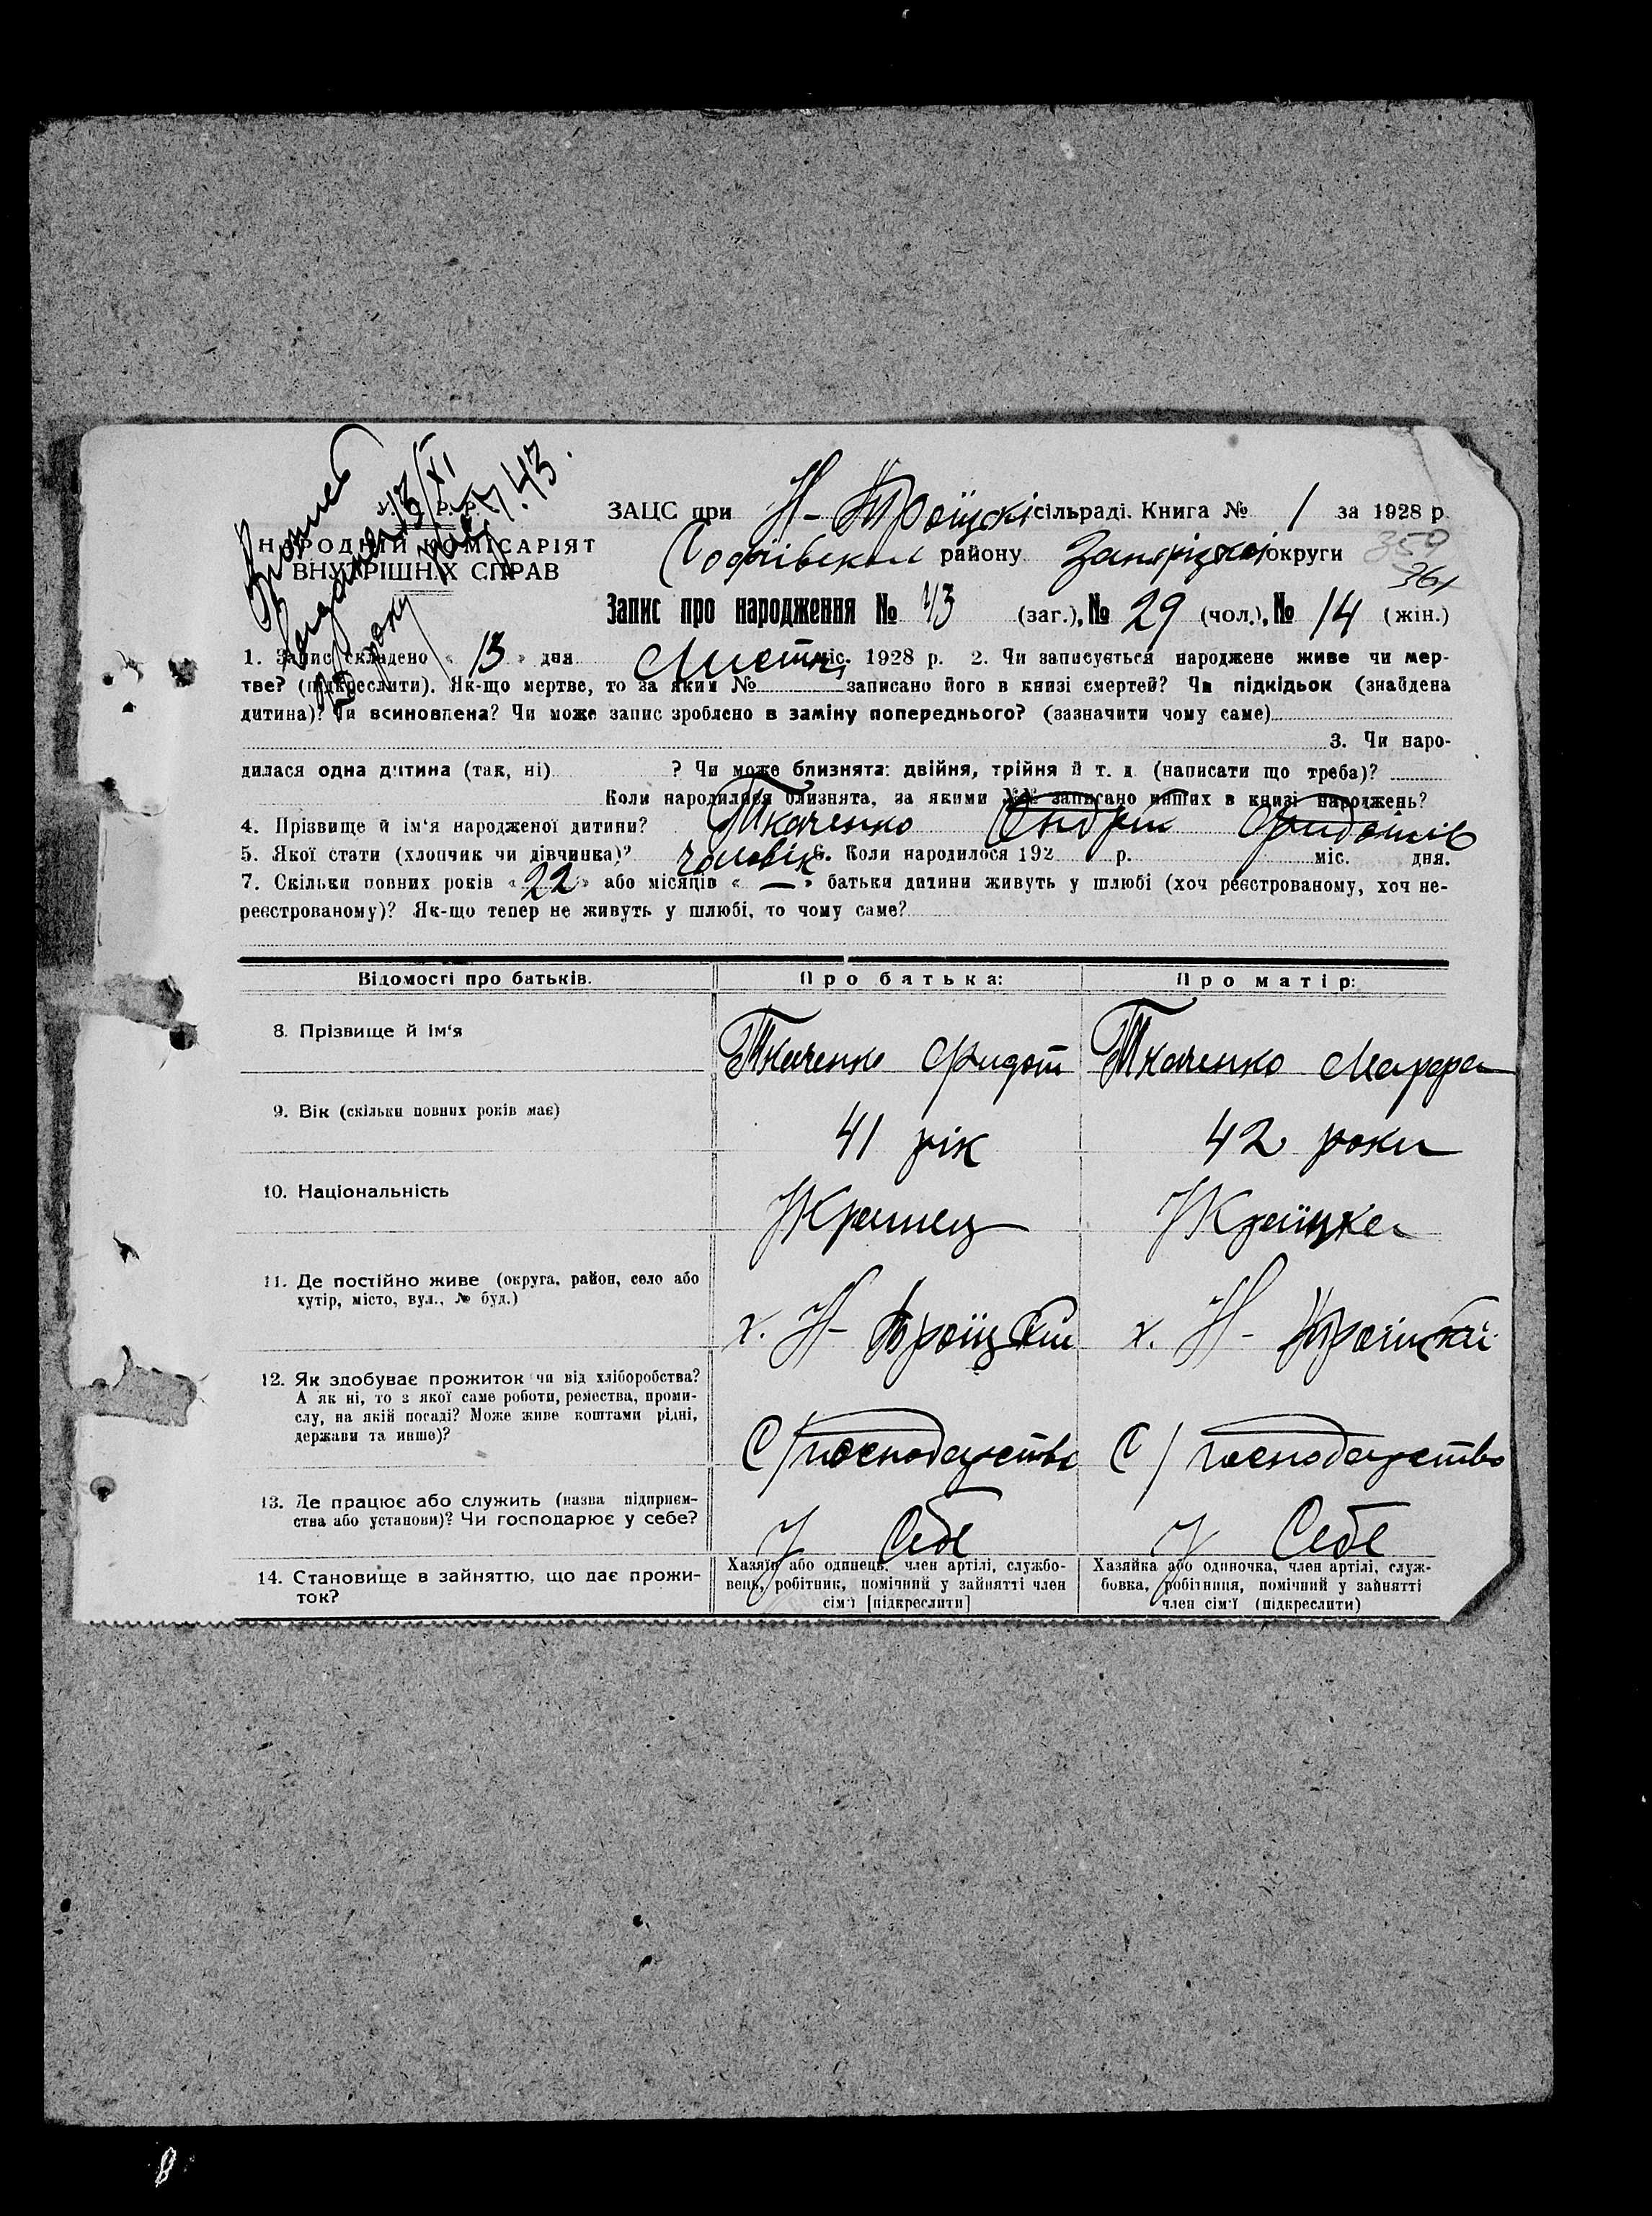 ЗАЦС при Н-Троїцькі сільраді. Книга № 1 за 1928 р
НАРОДНІЙ КОМІСАРІЯТ
ВНУТРІШНІХ СПРАВ
Софіївськой району Запорізькоі округи
359
361
Запис про народження № 43 (заг.), № 29 (чол.), № 14 (жін.)
1. Запис складено « 13 » дня Листоп міс. 1928 р. 2. Чи записується народжене живе чи мер-
тве? (підкреслити). Як-що мертве, то за яким № записано його в книзі смертей? Чи підкідьок (знайдена
дитина)? Чи всиновлена? Чи може запис зроблено в заміну попереднього? (зазначити чому саме)
3. Чи наро-
дилася одна дитина (так, ні) ? Чи може близнята: двійня, трійня й т. д. (написати що треба)?
Коли народилися близнята, за якими №№ записано инших в книзі народжень?
4. Прізвище й ім'я народженої дитини? Ткаченко Андрій Фидотів
5. Якої стати (хлопчик чи дівчинка)? чоловік 6. Коли народилося 192 р. міс. дня.
7. Скільки повних років « 22 » або місяців « — » батьки дитини живуть у шлюбі (хоч реєстрованому, хоч не-
реєстрованому)? Як-що тепер не живуть у шлюбі, то чому саме?
Відомості про батьків. Про батька: Про матір:
8. Прізвище й ім'я Ткаченко Фидот Ткаченко Марфа
9. Вік (скільки повних років має) 41 рік 42 роки
10. Національність Украинец Українка
11. Де постійно живе (округа, район, село або
хутір, місто, вул., № буд.)
х. Н-Троїцький х. Н-Троїцький
12. Як здобуває прожиток чи від хліборобства?
А як ні, то з якої саме роботи, ремества, проми-
слу, на якій посаді? Може живе коштами рідні,
держави та инше)?
С/господарство С/господарство
13. Де працює або служить (назва підприєм-
ства або установи)? Чи господарює у себе?
У Себе У Себе
14. Становище в зайняттю, що дає прожи-
ток?
Хазяїн або одинець, член артілі, службо-
вець, робітник, помічний у зайнятті член
сім'ї [підкреслити]
Хазяйка або одиночка, член артілі, служ-
бовка, робітниця, помічний у зайнятті
член сім'ї (підкреслити)